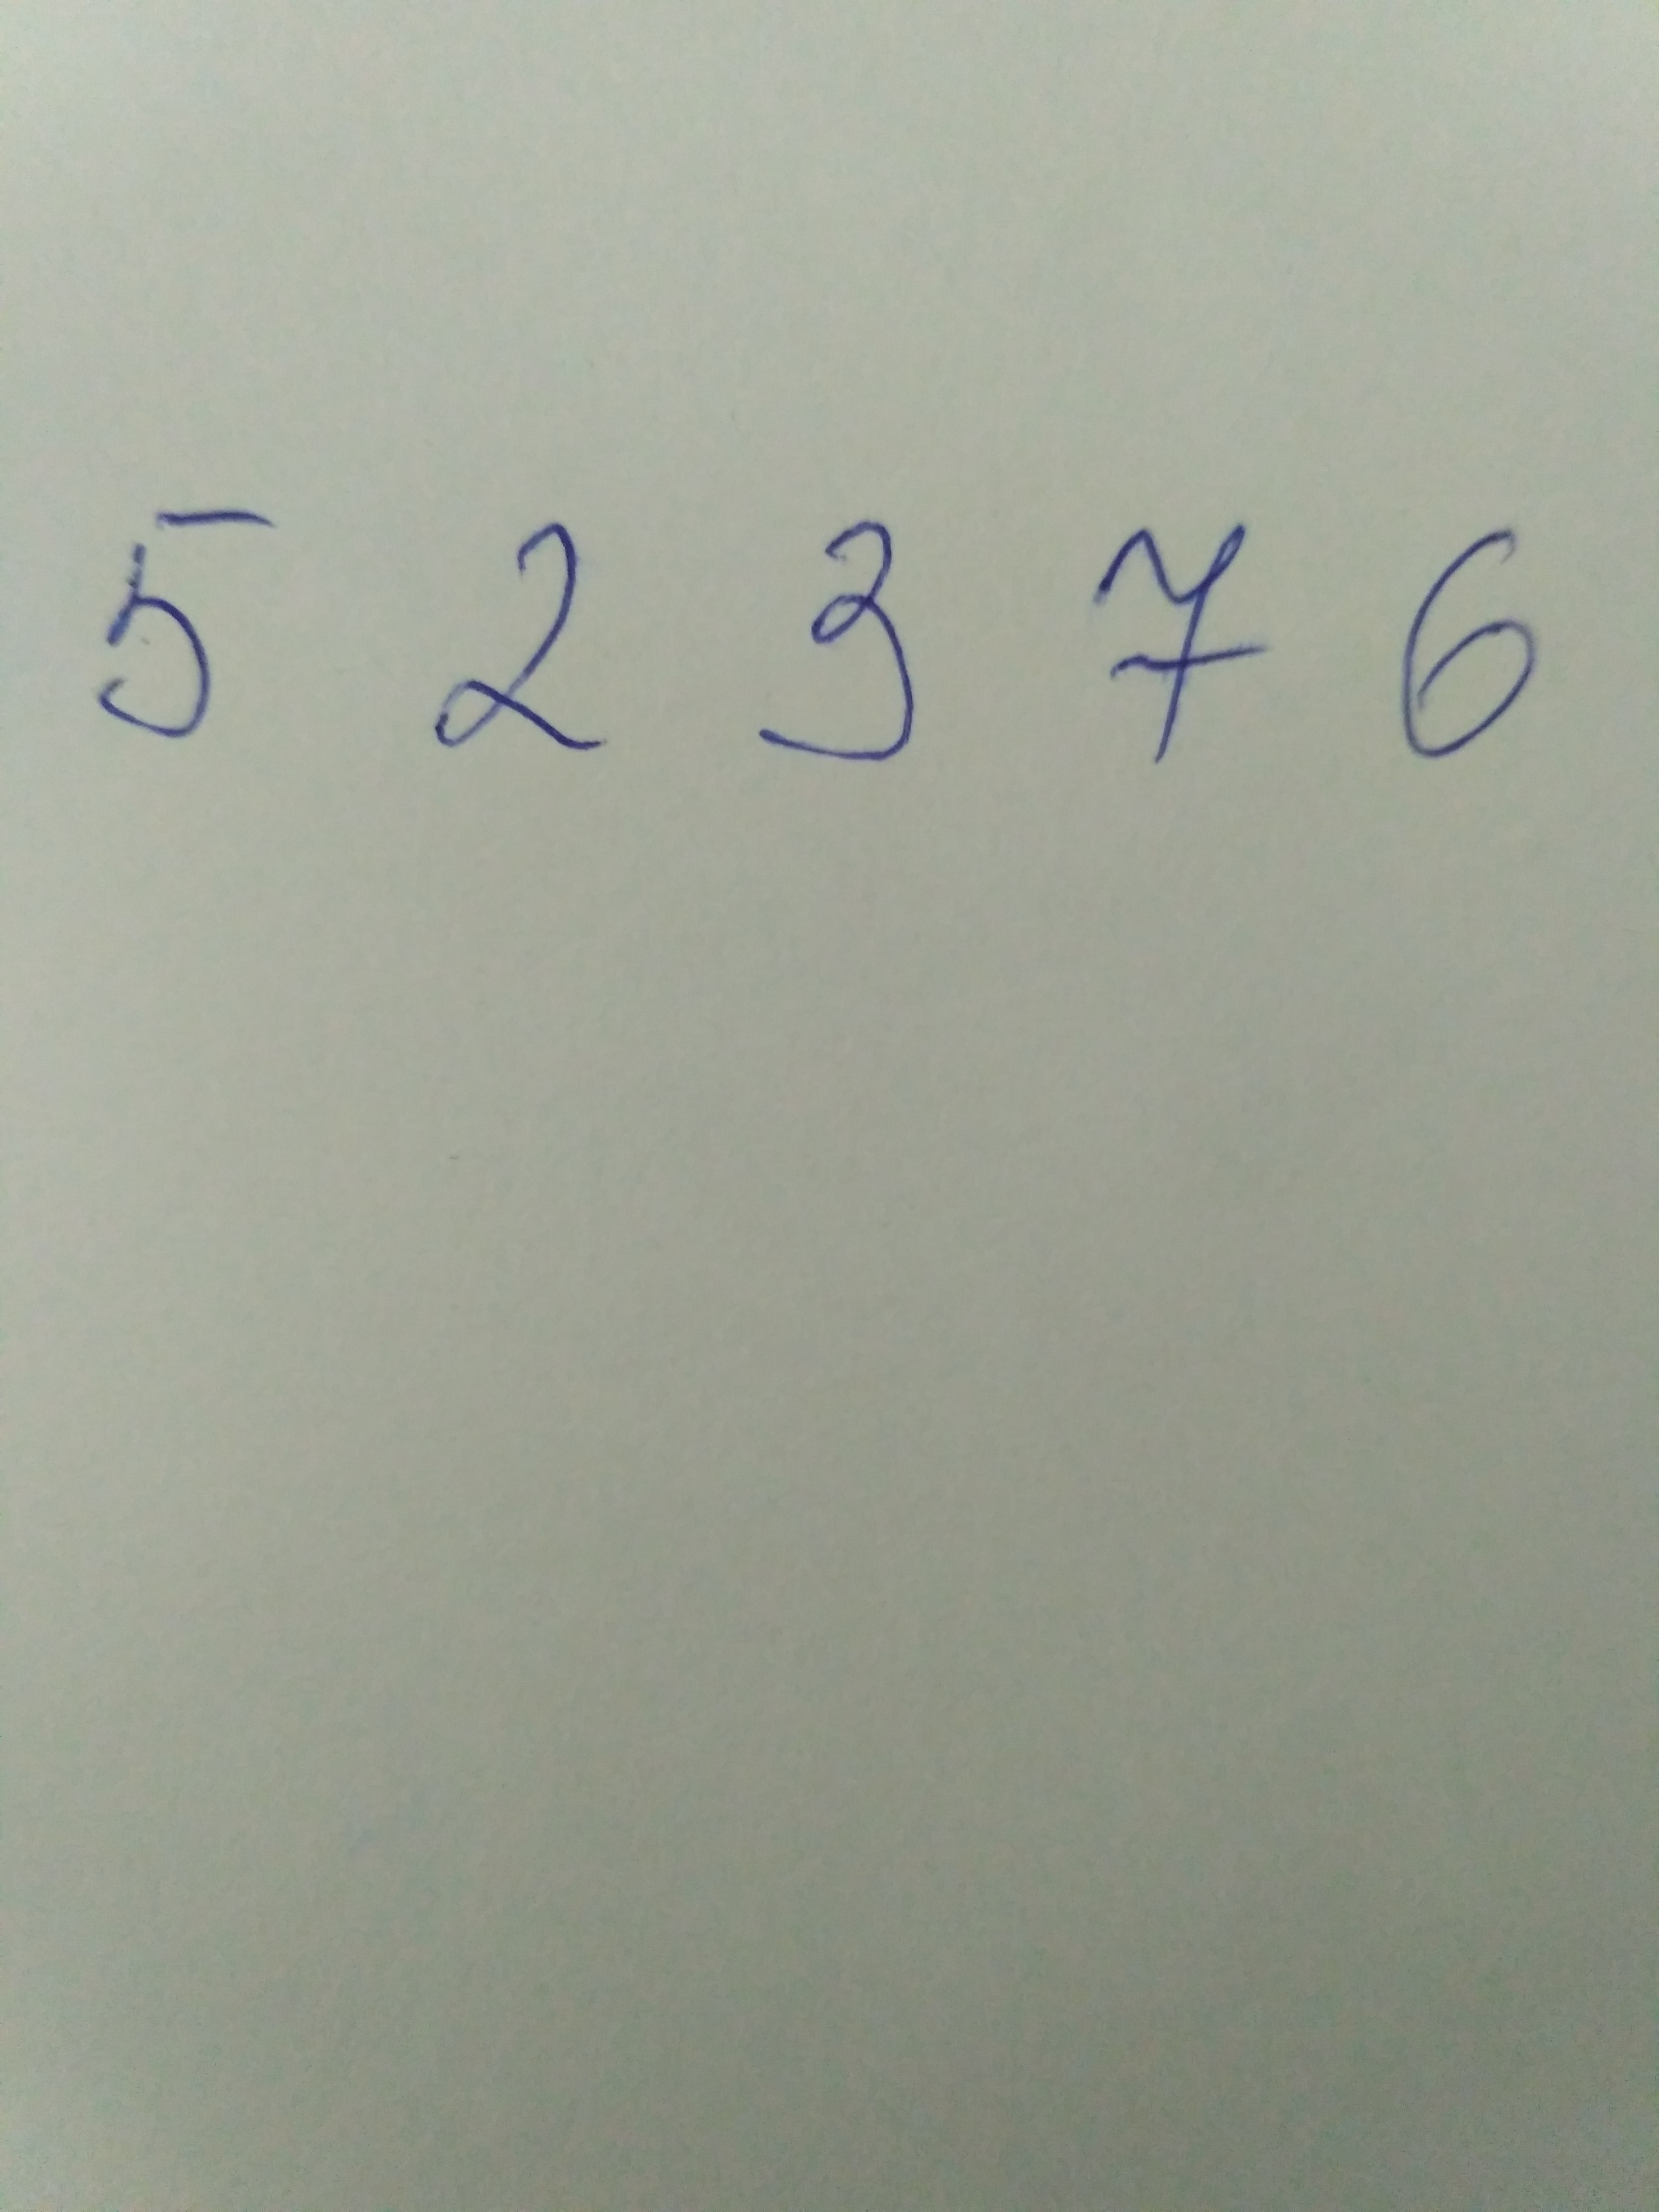 5 2 3 7 6